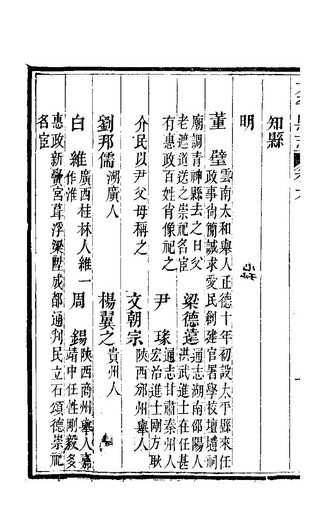 知縣
明
董璧 雲南太和舉人正德十年初設太平縣來任
政事尚簡誠求愛民創建官署學校壇壝祠
廟調青神縣去之日父
老遮道送之崇祀名宦
梁德遠 通志湖南邵陽人
洪武進士在任甚
有惠政百姓肖像祀之
尹瑑 通志甘肅秦州人
宏治進士剛方耿
介民以尹父母稱之
文朝宗 陝西邠州舉人
劉邦儒 湖廣人
楊翼之 貴州人
白維 廣西桂林人維一
作淮
周錫 陝西商州舉人嘉
靖中任性剛毅多
惠政新黌宮葺浮梁陞成都通判民立石頌德崇祀
名宦